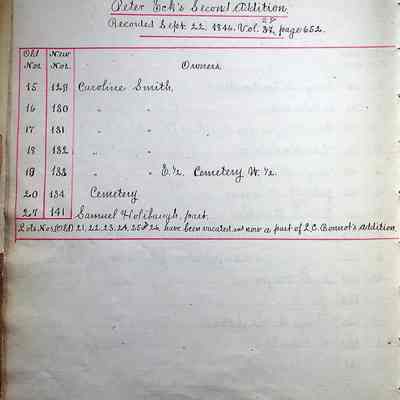 Peter Eck's Second Addition.
Recorded Sept. 22. 1846. Vol. 37, page 652.
Old Nos. New Nos. Owners.
15 129 Caroline Smith,
16 130 " "
17 131 " "
18 132 " "
19 133 " " E.½. Cemetery W.½.
20 134 Cemetery
27 141 Samuel Holibaugh, part.
Lots Nos (Old) 21, 22, 23, 24, 25 and 26, have been vacated and now a part of L.C. Bonnot's Addition.